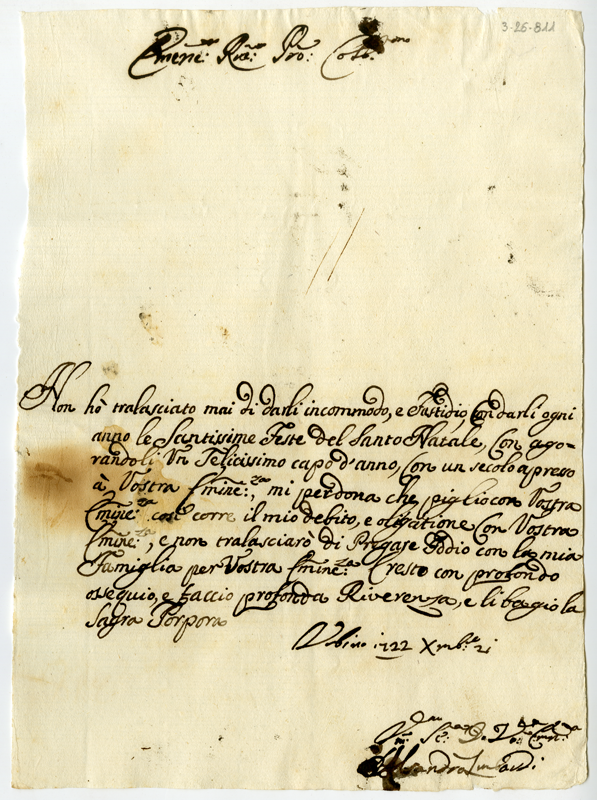 3-26-811
Emine:mo Rde:mo Prò: Col:mo
Non hò tralasciato mai di darli incommodo, e Fastidio, Con darli ogni
anno le Santissime Feste del Santo Natale, Con ago-
randoli Un Felicissimo capo d'anno, Con un secolo apresso
à Vostra Emine:za, mi perdona che piglio con Vostra
Emine:za così corre il mio debito, e oligatione Con Vostra
Emine:za, e non tralasciarò di Pregase Iddio con la mia
Famiglia per Vostra Emine:za Cresto con profondo
ossequio, e faccio profonda Riverensa, e li bagio la
Sagra Porpora
Urbino 1722 Xmb:e 21